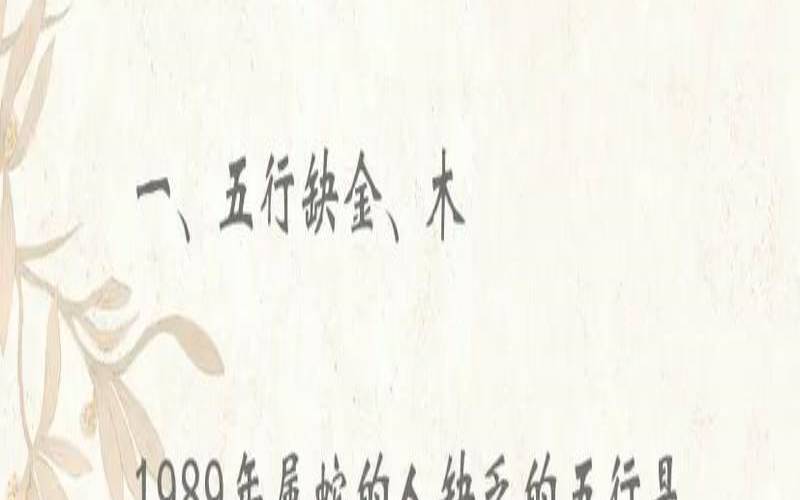 一、五行缺金、木
1989年属蛇的人缺乏的五行是